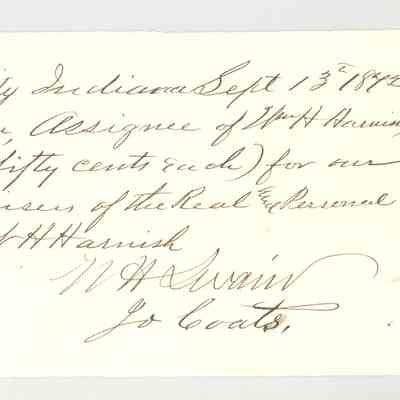 ty Indiana Sept 13th 1872
r, Assignee of Wm H Harnish
fifty cents Each) for our
isers of the Real and Personal
W H Harnish
W H Swain
Jo Coats.